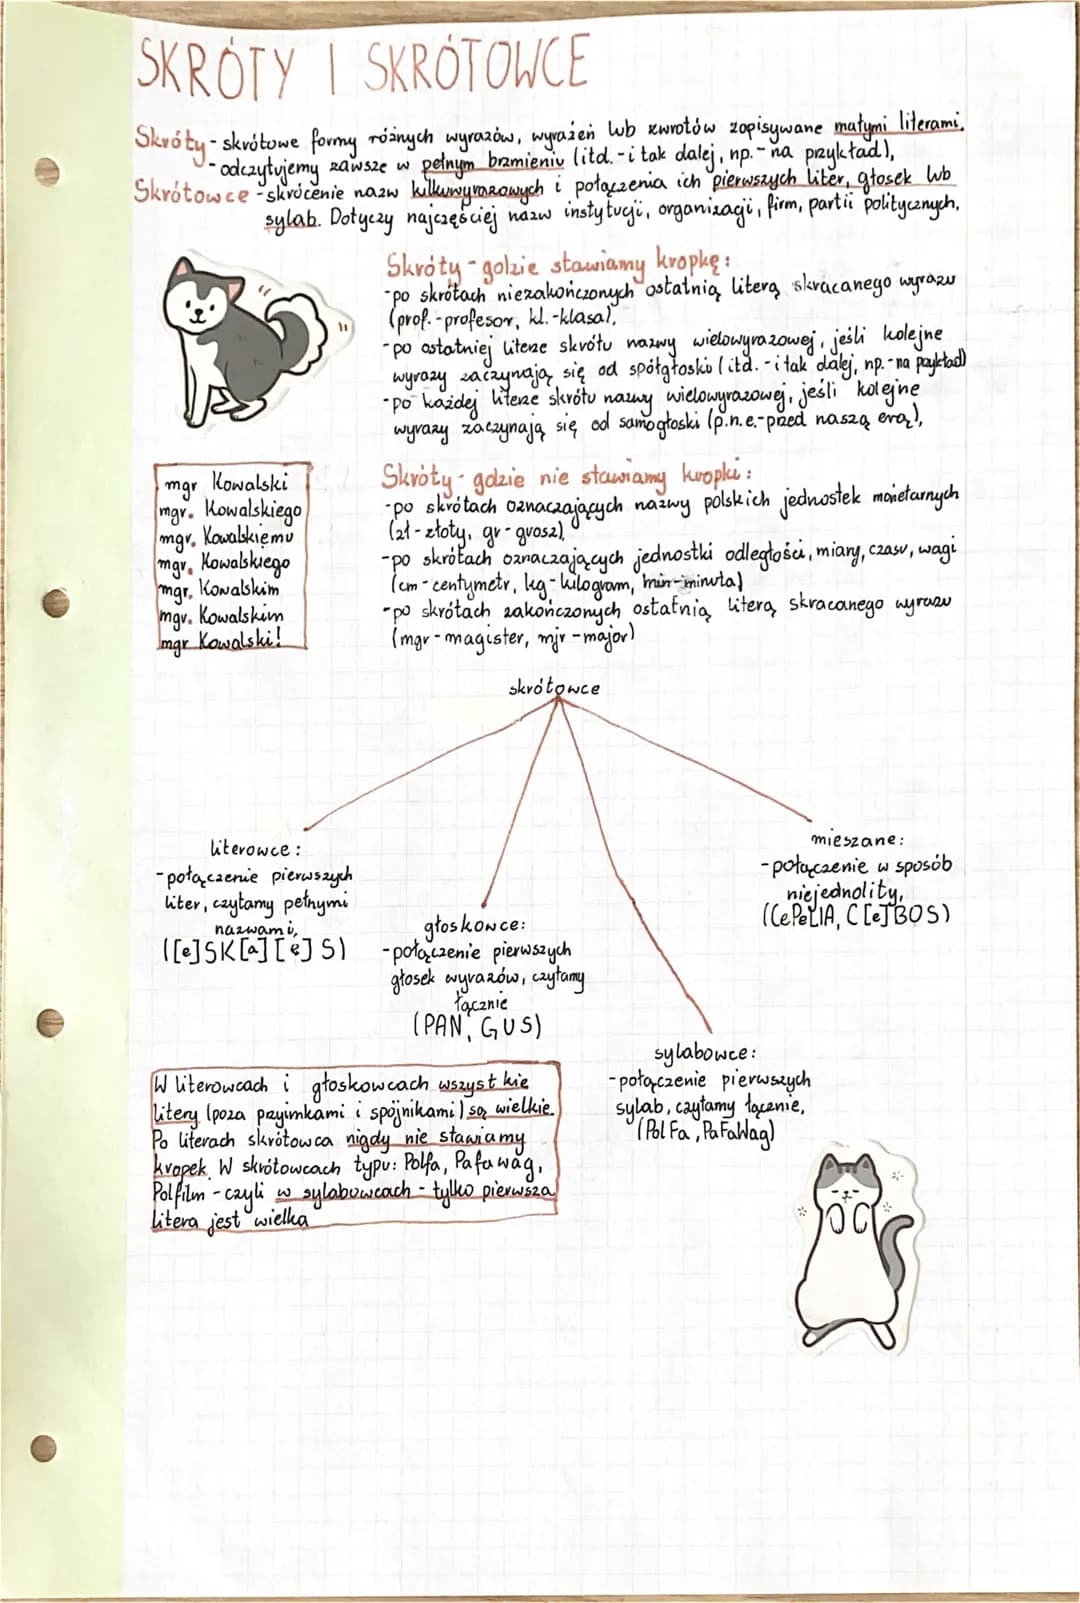 SKRÓTY I SKRÓTOWCE
Skróty - skrótowe formy różnych wyrazów, wyrażeń lub zwrotów zapisywane małymi literami.
- odczytujemy zawsze w pełnym brzmieniu (itd. - i tak dalej, np. - na przykład),
Skrótowce - skrócenie nazw kilkuwyrazowych i połączenia ich pierwszych liter, głosek lub
sylab. Dotyczy najczęściej nazw instytucji, organizacji, firm, partii politycznych,
Skróty - gdzie stawiamy kropkę:
- po skrótach niezakończonych ostatnią literą skracanego wyrazu
(prof. - profesor, kl. - klasa),
- po ostatniej literze skrótu nazwy wielowyrazowej, jeśli kolejne
wyrazy zaczynają się od spółgłoski (itd. - i tak dalej, np. - na przykład)
- po każdej literze skrótu nazwy wielowyrazowej, jeśli kolejne
wyrazy zaczynają się od samogłoski (p.n.e. - przed naszą erą),
mgr Kowalski
mgr. Kowalskiego
mgr. Kowalskiemu
mgr. Kowalskiego
mgr. Kowalskim
mgr. Kowalskim
mgr Kowalski!
Skróty - gdzie nie stawiamy kropki:
- po skrótach oznaczających nazwy polskich jednostek monetarnych
(zł - złoty, gr - grosz),
- po skrótach oznaczających jednostki odległości, miary, czasu, wagi
(cm - centymetr, kg - kilogram, min - minuta)
- po skrótach zakończonych ostatnią literą skracanego wyrazu
(mgr - magister, mjr - major)
skrótowce
literowce:
- połączenie pierwszych
liter, czytamy pełnymi
nazwami,
([e]SK[a][e]S)
głoskowce:
- połączenie pierwszych
głosek wyrazów, czytamy
łącznie
(PAN, GUS)
sylabowce:
- połączenie pierwszych
sylab, czytamy łącznie,
(PolFa, PaFaWag)
mieszane:
- połączenie w sposób
niejednolity,
(CePeLIA, C[e]BOS)
W literowcach i głoskowcach wszystkie
litery (poza przyimkami i spójnikami) są wielkie.
Po literach skrótowca nigdy nie stawiamy
kropek. W skrótowcach typu: Polfa, Pafawag,
Polfilm - czyli w sylabowcach - tylko pierwsza
litera jest wielka